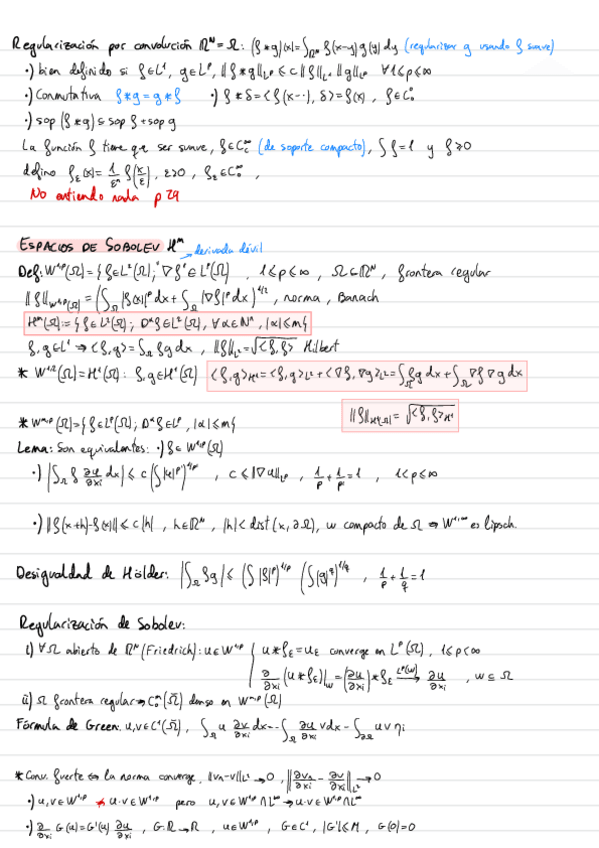 Regularización por convolución ℝᴺ=Ω: (f*g)(x)=∫_ℝᴺ f(x-y)g(y)dy (regularizar g usando f suave)
•) bien definido si f∈L¹, g∈Lᵖ, ||f*g||_Lᵖ ≤ c||f||_L¹ ||g||_Lᵖ ∀1≤p≤∞
•) Conmutativa f*g = g*f •) f*δ=<f(x-·), δ>=f(x), f∈C₀^∞
•) sop(f*g)⊆sop f+sop g
La función f tiene que ser suave, f∈C₀^∞ (de soporte compacto), ∫f=1 y f≥0
defino f_ε(x)= 1/εⁿ f(x/ε), ε>0, f_ε∈C₀^∞,
No entiendo nada p 29
ESPACIOS DE SOBOLEV Hᵐ
→ derivada débil
Def: W¹'ᵖ(Ω)={f∈Lᵖ(Ω); ∇f∈Lᵖ(Ω), 1≤p≤∞, Ω⊂ℝᴺ, frontera regular
||f||_W¹'ᵖ(Ω)=(∫_Ω |f(x)|ᵖdx+∫_Ω |∇f|ᵖdx)^1/2, norma, Banach
Hᵐ(Ω):={f∈L²(Ω); Dᵅf∈L²(Ω), ∀α∈Nᴺ, |α|≤m}
f,g∈L² → <f,g>=∫_Ω fg dx, ||f||_L²=√<f,f> Hilbert
* W¹'²(Ω)=H¹(Ω): f,g∈H¹(Ω) <f,g>_H¹=<f,g>_L²+<∇f,∇g>_L²=∫fg dx+∫_Ω ∇f∇g dx
* Wᵐ'ᵖ(Ω)={f∈Lᵖ(Ω); Dᵅf∈Lᵖ, |α|≤m} ||f||_H¹(Ω)=√<f,f>_H¹
Lema: Son equivalentes: •) f∈W¹'ᵖ(Ω)
•) |∫_Ω f ∂u/∂xi dx| ≤ c(∫|u|ᵖ')^1/p', c≤||∇u||_Lᵖ, 1/p+1/p'=1, 1<p≤∞
•) ||f(x+h)-f(x)|| ≤ c|h|, h∈ℝᴺ, |h|<dist(x,∂Ω), w compacto de Ω ⇒ W¹'^∞ es lipsch.
Desigualdad de Hölder: |∫_Ω fg| ≤ (∫|f|ᵖ)^1/p (∫|g|^q)^1/q, 1/p+1/q=1
Regularización de Sobolev:
i) ∀Ω abierto de ℝᴺ (Friedrich): u∈W¹'ᵖ { u*f_ε=u_ε converge en Lᵖ(Ω), 1≤p<∞
∂/∂xi (u*f_ε)|_w=(∂u/∂xi)*f_ε →^Lᵖ(w) ∂u/∂xi, w⊆Ω
ii) Ω frontera regular → C₀^∞(Ω̄) denso en W¹'ᵖ(Ω)
Fórmula de Green: u,v∈C¹(Ω̄), ∫_Ω u ∂v/∂xi dx=-∫_Ω ∂u/∂xi vdx-∫_∂Ω uv ηi
* Conv. fuerte ⇔ la norma converge, ||vn-v||_L² → 0, ||∂vn/∂xi - ∂v/∂xi||_L² → 0
•) u,v∈W¹'ᵖ ⇏ u·v∈W¹'ᵖ pero u,v∈W¹'ᵖ∩L^∞ → u·v∈W¹'ᵖ∩L^∞
•) ∂/∂xi G(u)=G'(u) ∂u/∂xi, G:ℝ→ℝ, u∈W¹'ᵖ, G∈C¹, |G'|≤M, G(0)=0